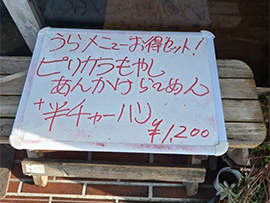 うらメニューお得セット!
ピリカラもやし
あんかけらーめん
+半チャーハン
¥1,200